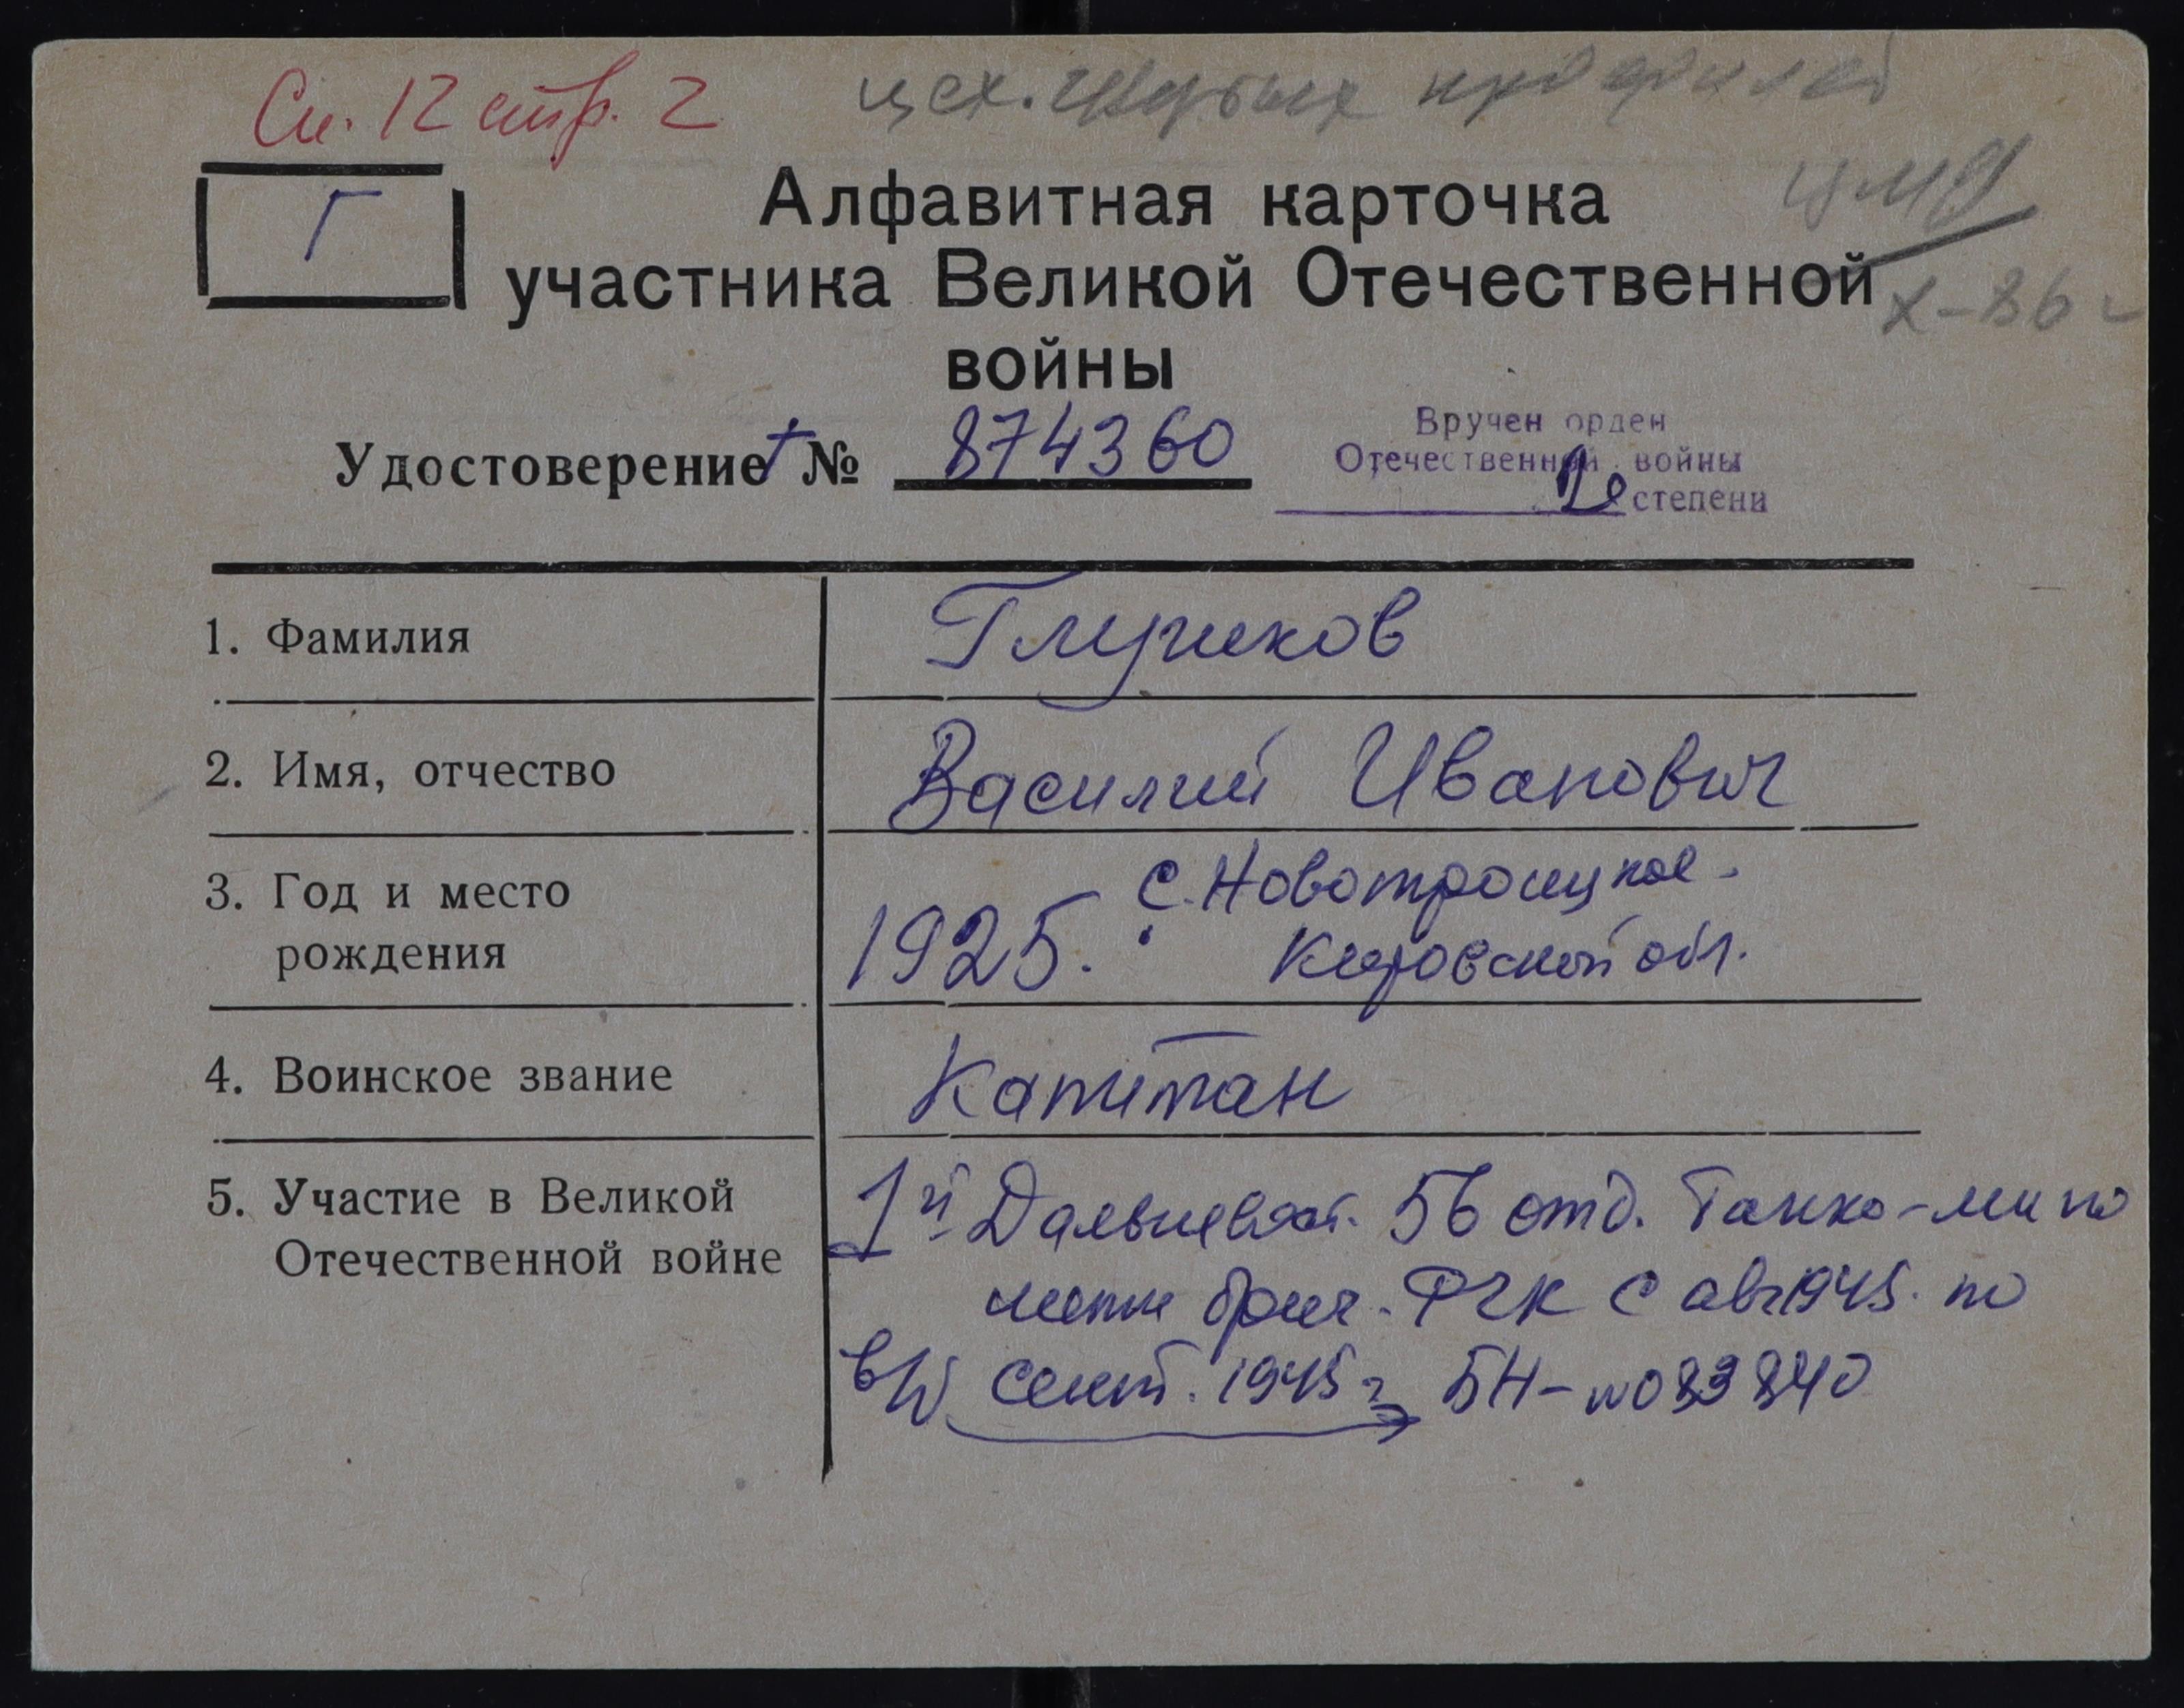 Сп. 12 стр. 2
цех. гнутых профилей
Г
Алфавитная карточка
участника Великой Отечественной
войны
Х-86 г
Удостоверение Т № 874360
Вручен орден
Отечественной войны
2 степени
1. Фамилия Глушков
2. Имя, отчество Василий Иванович
3. Год и место рождения 1925. с. Новотроицкое.
Кировской обл.
4. Воинское звание Капитан
5. Участие в Великой Отечественной войне 1й Дальневост. 56 отд. Танко-
бриг. с авг 1945. по
сент. 1945 г БН-